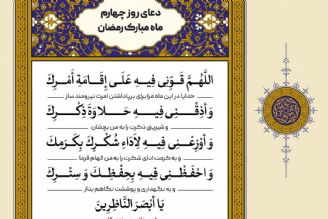 دعای روز چهارم
ماه مبارک رمضان
اَللّهُمَّ قَوِّنی فیهِ عَلی إِقامَةِ أَمْرِکَ
خدایا در این ماه مرا برای برپاداشتن امرت نیرومند ساز
وَ أَذِقْنی فیهِ حَلاوَةَ ذِکْرِکَ
و شیرینی ذکرت را به من بچشان
وَ أَوْزِعْنی فیهِ لِأَداءِ شُکْرِکَ بِکَرَمِکَ
و به کرمت ادای شکرت را به من الهام فرما
وَ احْفَظْنی فیهِ بِحِفْظِکَ وَ سِتْرِکَ
و به نگهداری و پوششت نگاهم بدار
یا أَبْصَرَ النّاظِرینَ